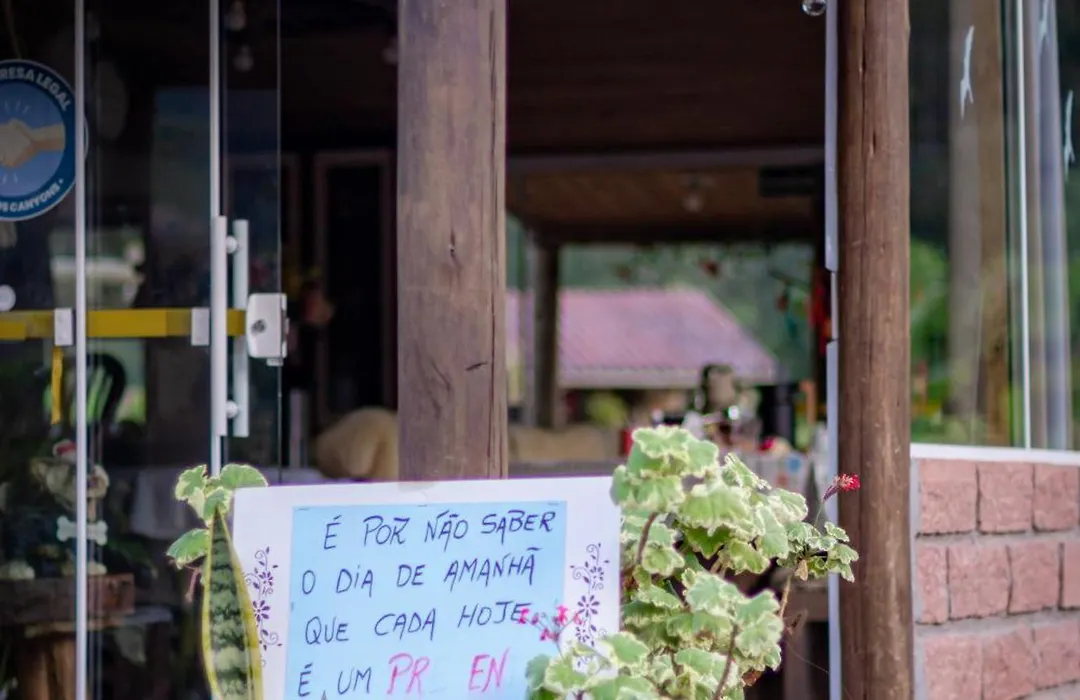 RESA LEGAL
OS CANYONS
É POR NÃO SABER
O DIA DE AMANHÃ
QUE CADA HOJE
É UM PR EN